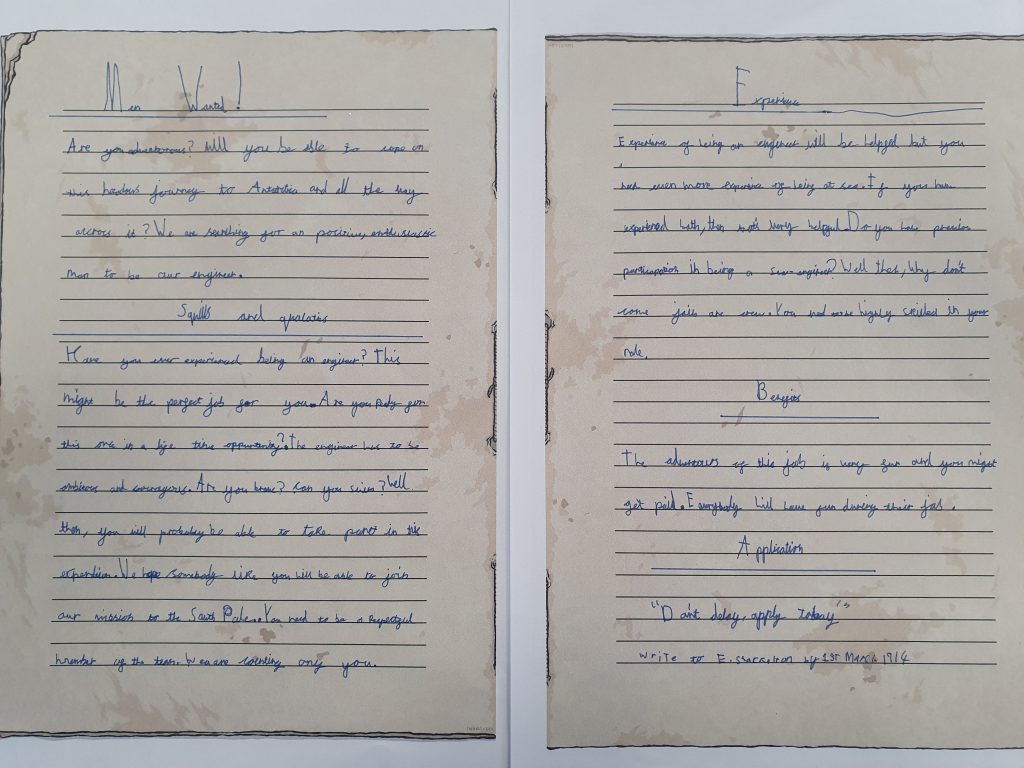 Men Wanted!
Are you adventorous? Will you be able to cope on
this hazadous journey to Antartica and all the way
accross it? We are searching for an positive, enthusiastic
man to be our engineer.
Squills and qualaties
Have you ever experienced being an engineer? This
might be the perfect job for you. Are you Ready for
this once in a life time oppurtunity? The engineer has to be
ambitious and courageous. Are you brave? Can you swim? Well
then, you will probably be able to take part in this
expendition. We hope somebody like you will be able to join
our mission to the South Pole. You need to be a Respectful
member of the team. We are counting on you.
Experience
Experience of being an engineer will be helpful but you
need even more experience of being at sea. If you have
experienced both, then that's very helpful. Do you have previous
participation in being a sea-engineer? Well then, why don't
come join are crew. You need more highly skilled in your
role.
Benefits
The adventours of this job is very fun and you might
get paid. Everybody will have fun during their job.
Application
"Don't delay, apply today"
Write to E. Shackelton by 1st March 1914